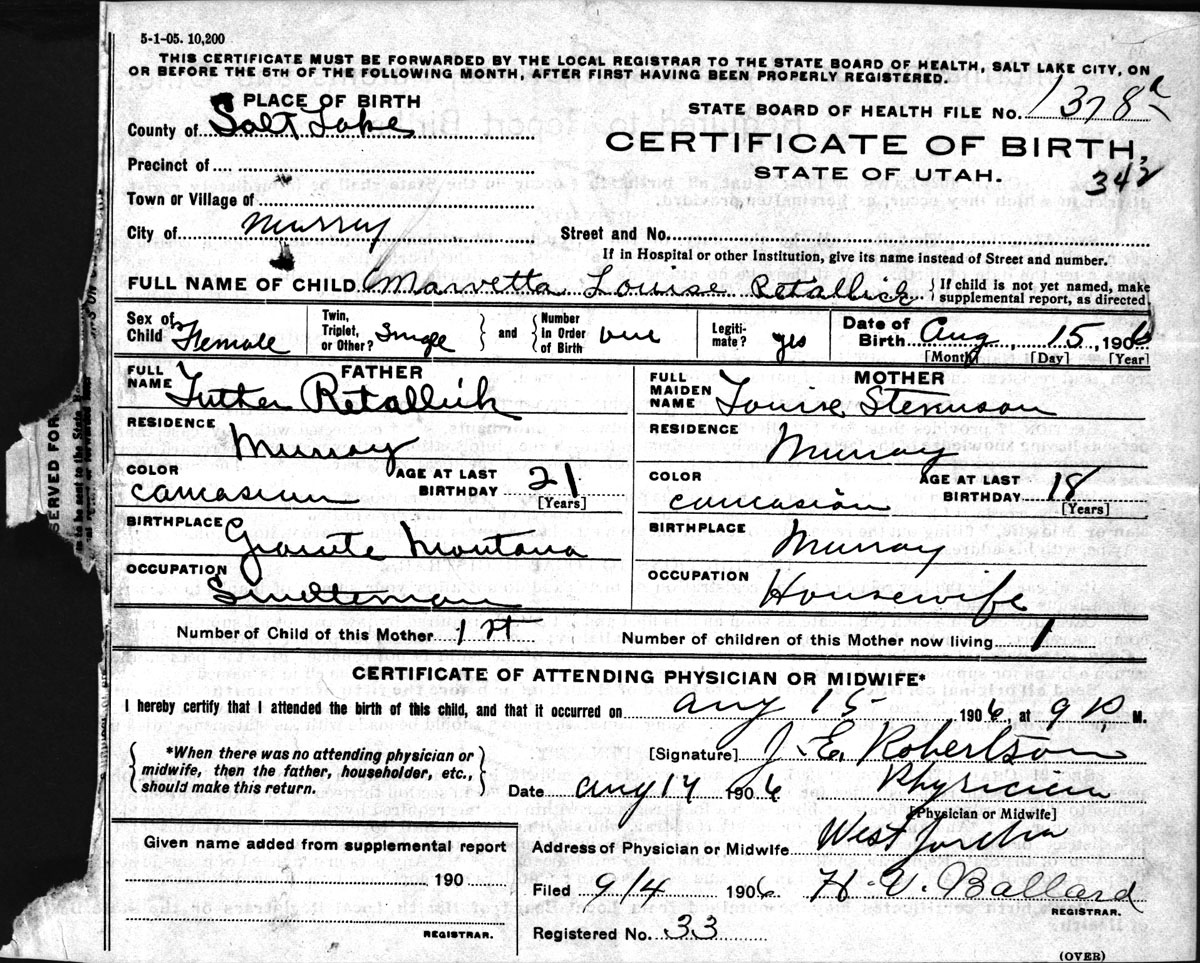 5-1-05. 10,200
THIS CERTIFICATE MUST BE FORWARDED BY THE LOCAL REGISTRAR TO THE STATE BOARD OF HEALTH, SALT LAKE CITY, ON
OR BEFORE THE 5TH OF THE FOLLOWING MONTH, AFTER FIRST HAVING BEEN PROPERLY REGISTERED.
PLACE OF BIRTH
County of Salt Lake
Precinct of
Town or Village of
City of Murray
STATE BOARD OF HEALTH FILE No. 1378
CERTIFICATE OF BIRTH,
STATE OF UTAH.
342
Street and No.
If in Hospital or other Institution, give its name instead of Street and number.
FULL NAME OF CHILD Marvetta Louise Retallick { If child is not yet named, make
supplemental report, as directed
Sex of
Child Female
Twin,
Triplet,
or Other? Single } and { Number
In Order
of Birth one
Legiti-
mate? yes
Date of
Birth Aug, 15, 1906
[Month] [Day] [Year]
FATHER
FULL
NAME Luther Retallick
RESIDENCE Murray
COLOR caucasian
AGE AT LAST
BIRTHDAY 21
[Years]
BIRTHPLACE Granite Montana
OCCUPATION Smelterman
MOTHER
FULL
MAIDEN
NAME Louise
RESIDENCE Murray
COLOR caucasian
AGE AT LAST
BIRTHDAY 18
[Years]
BIRTHPLACE Murray
OCCUPATION Housewife
Number of Child of this Mother 1st Number of children of this Mother now living 1
CERTIFICATE OF ATTENDING PHYSICIAN OR MIDWIFE*
I hereby certify that I attended the birth of this child, and that it occurred on Aug 15 1906, at 9 P. M.
{ *When there was no attending physician or
midwife, then the father, householder, etc.,
should make this return. }
[Signature] J. E. Robertson
Date Aug 1906 Physician
[Physician or Midwife]
Address of Physician or Midwife West Jordan
Given name added from supplemental report
190
REGISTRAR.
Filed 9/4 1906 H. V. Ballard
REGISTRAR.
Registered No. 33
(OVER)
SERVED FOR